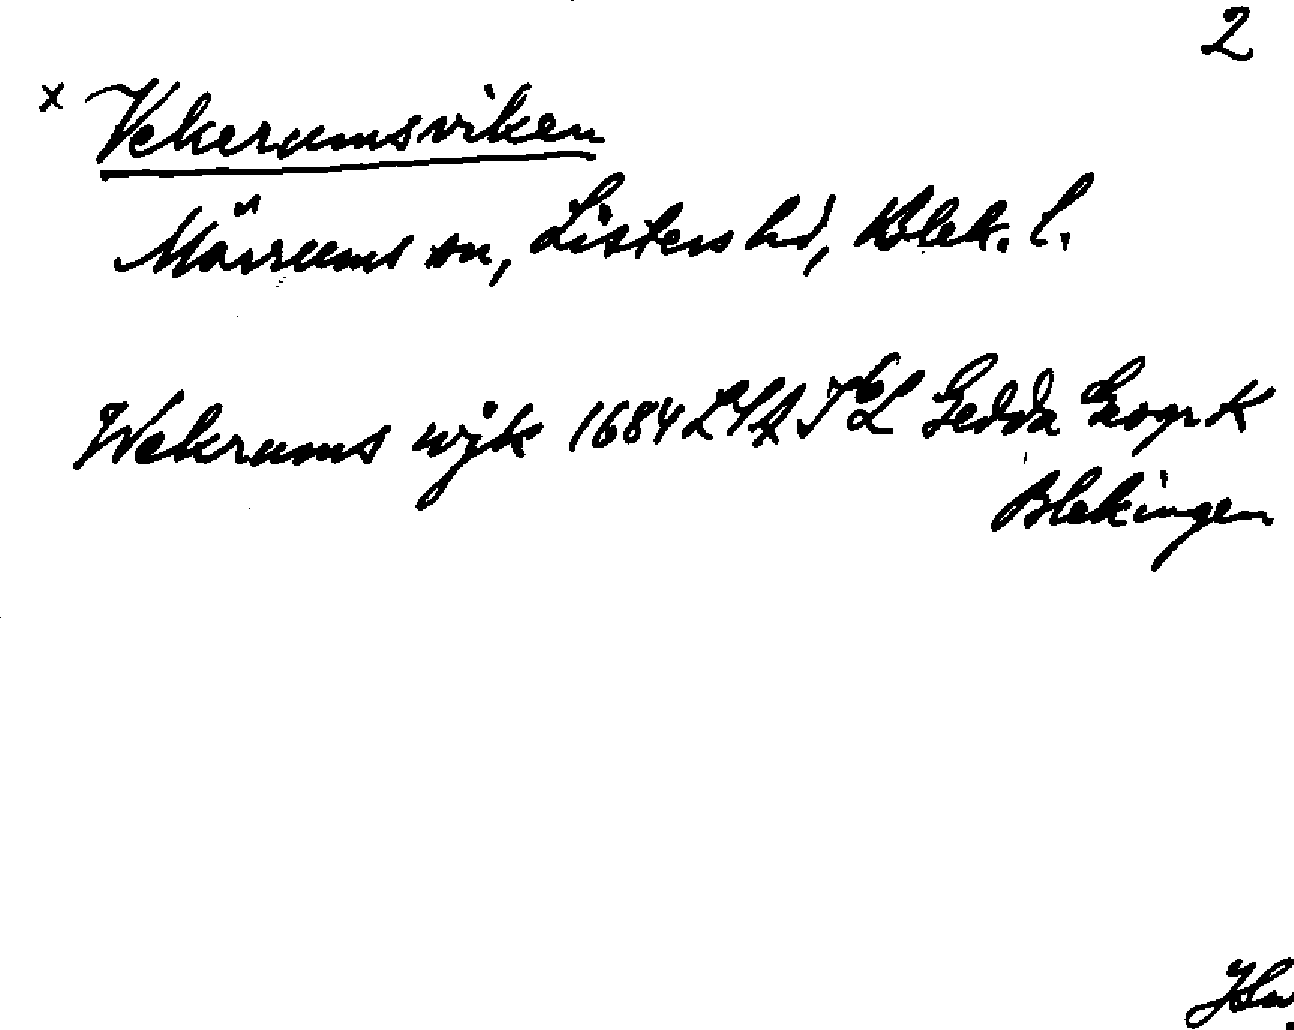 2
x Vekeramsviken
Mörrums sn, Listers hd, Blek. l.
Wekrams wijk 1684 Gedda Geogr K
Blekingen